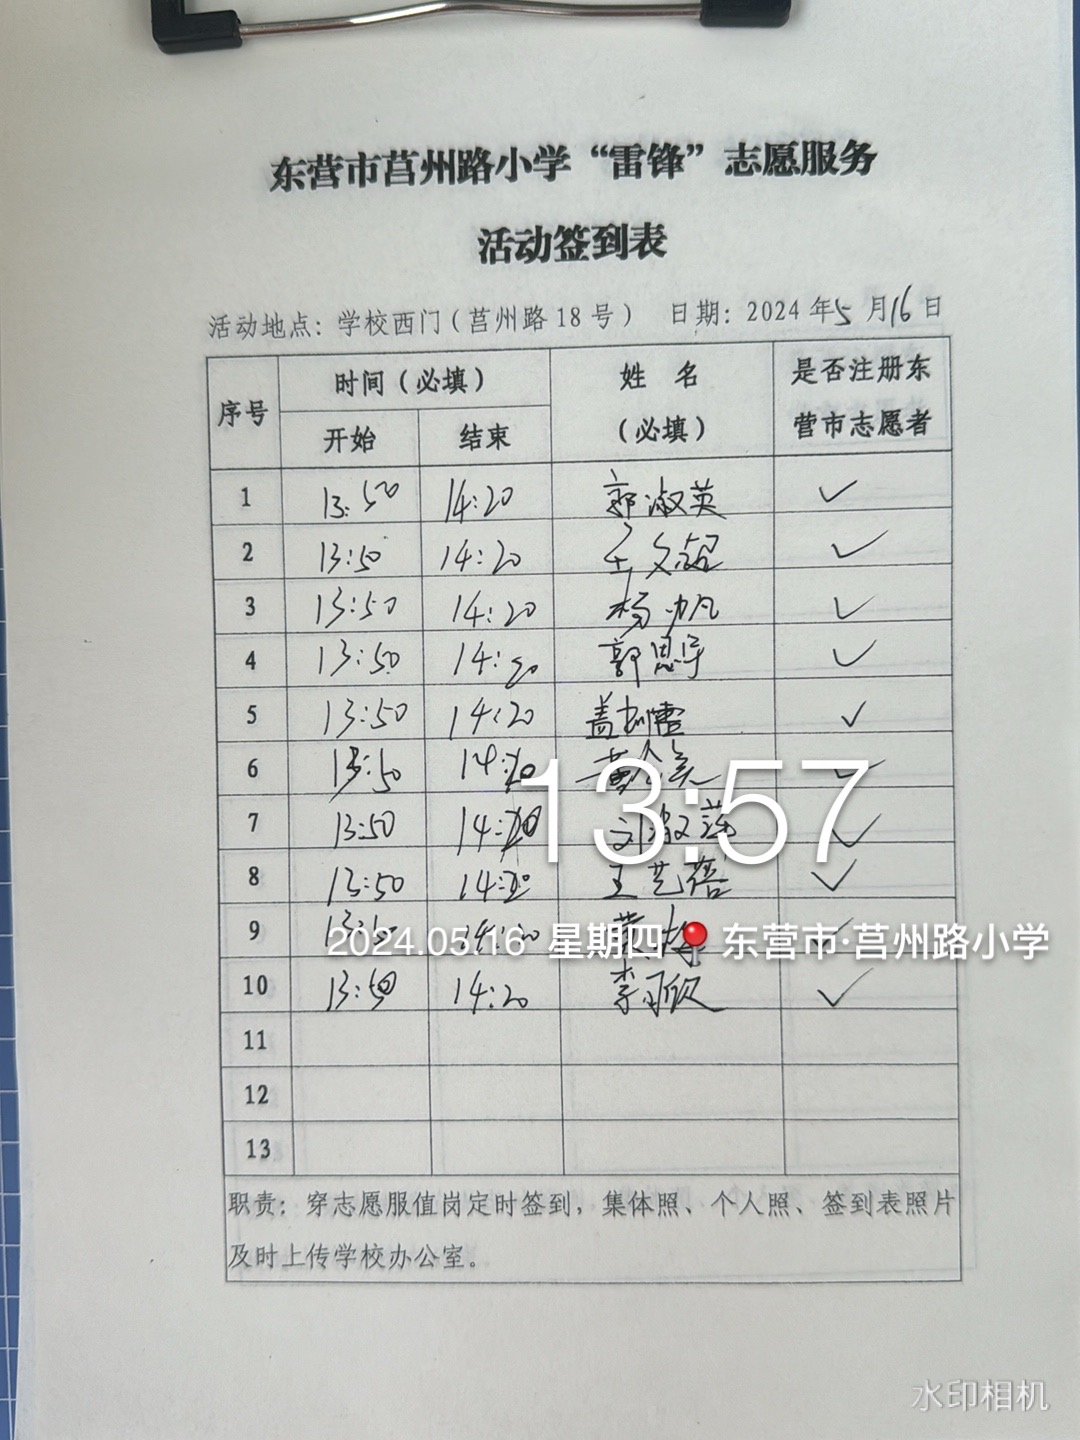 东营市莒州路小学“雷锋”志愿服务
活动签到表
活动地点：学校西门（莒州路18号） 日期：2024年5月16日
序号 时间（必填） 姓 名（必填） 是否注册东营市志愿者
开始 结束
1 13:50 14:20 郭淑英 ✓
2 13:50 14:20 ✓
3 13:50 14:20 杨帆 ✓
4 13:50 14:20 郭恩宇 ✓
5 13:50 14:20 盖 雷 ✓
6 13:50 14:20 ✓
7 13:50 14:20 刘淑 ✓
8 13:50 14:20 王艺蓓 ✓
9 13:50 14:20 ✓
10 13:50 14:20 李 欣 ✓
11
12
13
职责：穿志愿服值岗定时签到，集体照、个人照、签到表照片
及时上传学校办公室。
13:57
2024.05.16 星期四 东营市·莒州路小学
水印相机